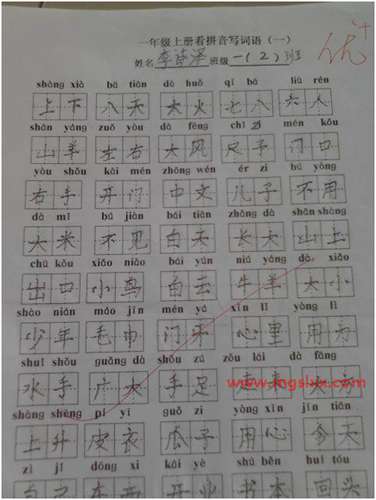 一年级上册看拼音写词语（一）
优+
姓名 李 泽 班级 一(2)班
shàng xià bā tiān dà huǒ qī bā liù rén
上下 八天 大火 七八 六人
shān yáng zuǒ yòu dà fēng chǐ zi mén kǒu
山羊 左右 大风 尺子 门口
yòu shǒu kāi mén zhōng wén ér zi bú yòng
右手 开门 中文 儿子 不用
dà mǐ bú jiàn bái tiān zhǎng dà shān shàng
大米 不见 白天 长大 山上
chū kǒu xiǎo niǎo bái yún niú yáng dà xiǎo
出口 小鸟 白云 牛羊 大小
shào nián máo jīn mén yá xīn lǐ yòng lì
少年 毛巾 门牙 心里 用力
shuǐ shǒu guǎng dà shǒu zú zǒu lái dà fāng
水手 广大 手足 走来 大方
www.mgslw.com
shàng shēng pí yī guā zǐ yòng xīn jīn tiān
上升 皮衣 瓜子 用心 今天
zì jǐ dōng xi kāi yè shū běn huí tóu
自己 东西 开业 书本 回头